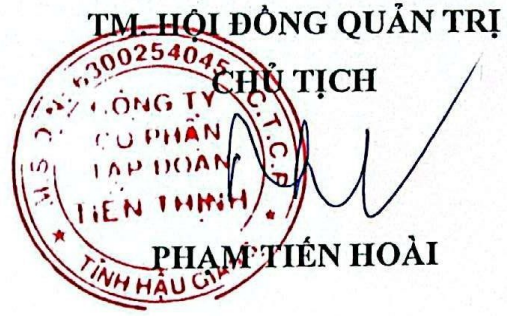 TM. HỘI ĐỒNG QUẢN TRỊ
CHỦ TỊCH
M.S.D.N: 6300254045 - C.T.C.P
CÔNG TY
CỔ PHẦN
TẬP ĐOÀN
TIẾN THỊNH
TỈNH HẬU GIANG
PHẠM TIẾN HOÀI